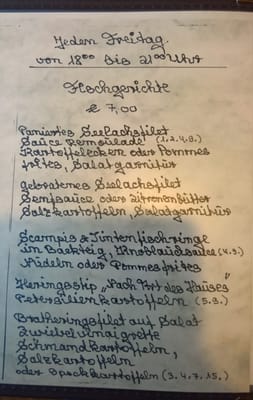 Jeden Freitag
von 18⁰⁰ bis 21⁰⁰ Uhr
Fischgerichte
€ 7,00
Paniertes Seelachsfilet
Sauce Remoulade (1.2.4.9.)
Kartoffelecken oder Pommes
frites, Salatgarnitur
gebratenes Seelachsfilet
Senfsauce oder Zitronenbutter
Salzkartoffeln, Salatgarnitur
Scampis & Tintenfischringe
im Backteig, Knoblauchsauce (4.9.)
Nudeln oder Pommesfrites
Heringsstip „Nach Art des Hauses"
Petersilienkartoffeln (5.9.)
Bratheringsfilet auf Salat
Zwiebelvinaigrette
Schmandkartoffeln,
Salzkartoffeln
oder Speckkartoffeln (3.4.7.15.)